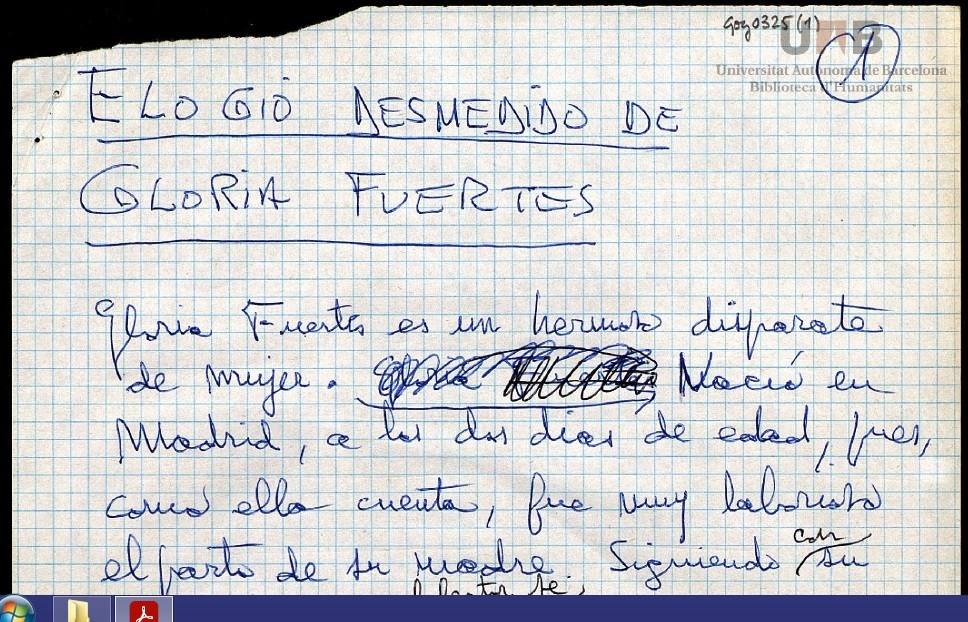 Goy0325(1)
1
UAB
Universitat Autònoma de Barcelona
Biblioteca d'Humanitats
ELOGIO DESMEDIDO DE
GLORIA FUERTES
Gloria Fuertes es un hermoso disparate
de mujer. Nació en
Madrid, a los dos días de edad, pues,
como ella cuenta, fue muy laborioso
el parto de su madre. Siguiendo con su